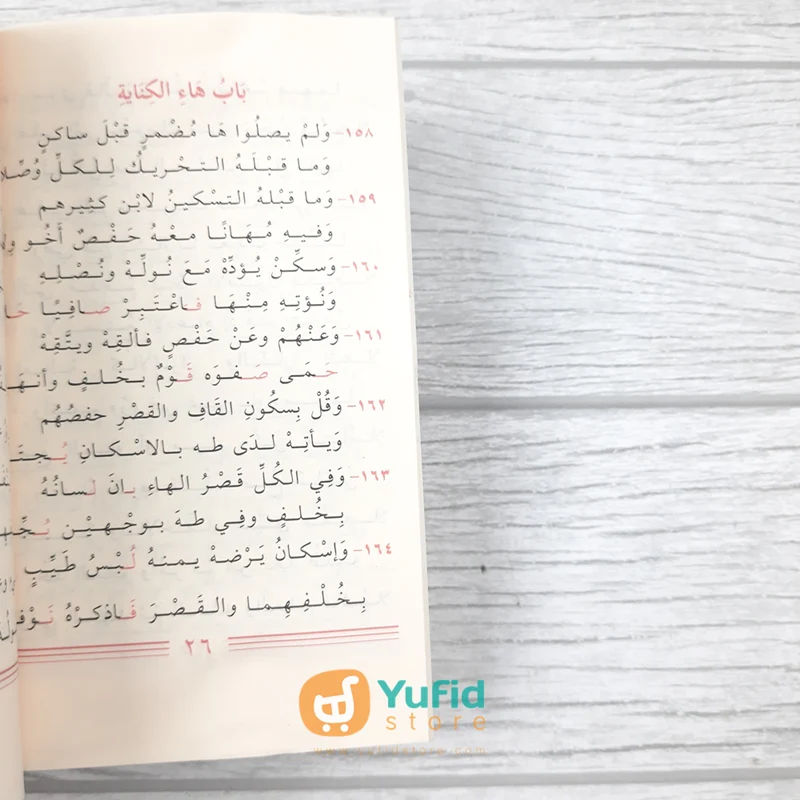 بَابُ هَاءِ الْكِنَايَةِ
١٥٨- وَلمْ يصلُوا هَا مُضْمرٍ قبْلَ ساكنٍ
وَما قبْلَهُ التحْريكُ لِلكلِّ وُصِّلا
١٥٩- وَما قبْلهُ التسْكينُ لابْن كثِيرهم
وَفيهِ مُهَانًا معْهُ حَفْصٌ أَخُو
١٦٠- وَسكِّنْ يُؤدِّهْ مَعَ نُولِّهْ ونُصْلِهِ
وَنُؤتِهِ مِنْهَا فاعْتَبِرْ صافِيًا
١٦١- وَعَنْهُمْ وعَنْ حَفْصٍ فألقِهْ ويتَّقِهْ
حَمَى صَفوَه قَوْمٌ بخُلفٍ وأنهَ
١٦٢- وَقُلْ بِسكُونِ القَافِ والقصْرِ حفصُهُم
وَيأتِهْ لدَى طه بالاسْكانِ يُجتَ
١٦٣- وَفِي الكُلِّ قَصْرُ الهاءِ بانَ لسانُهُ
بِخُلفٍ وفِي طهَ بوجْهيْنِ
١٦٤- وَإسْكانُ يَرْضهْ يمنهُ لُبْسُ طَيِّبٍ
بِخُلْفِهِما والقَصْرَ فَاذكرْهُ نَوْ
٢٦
Yufid
store